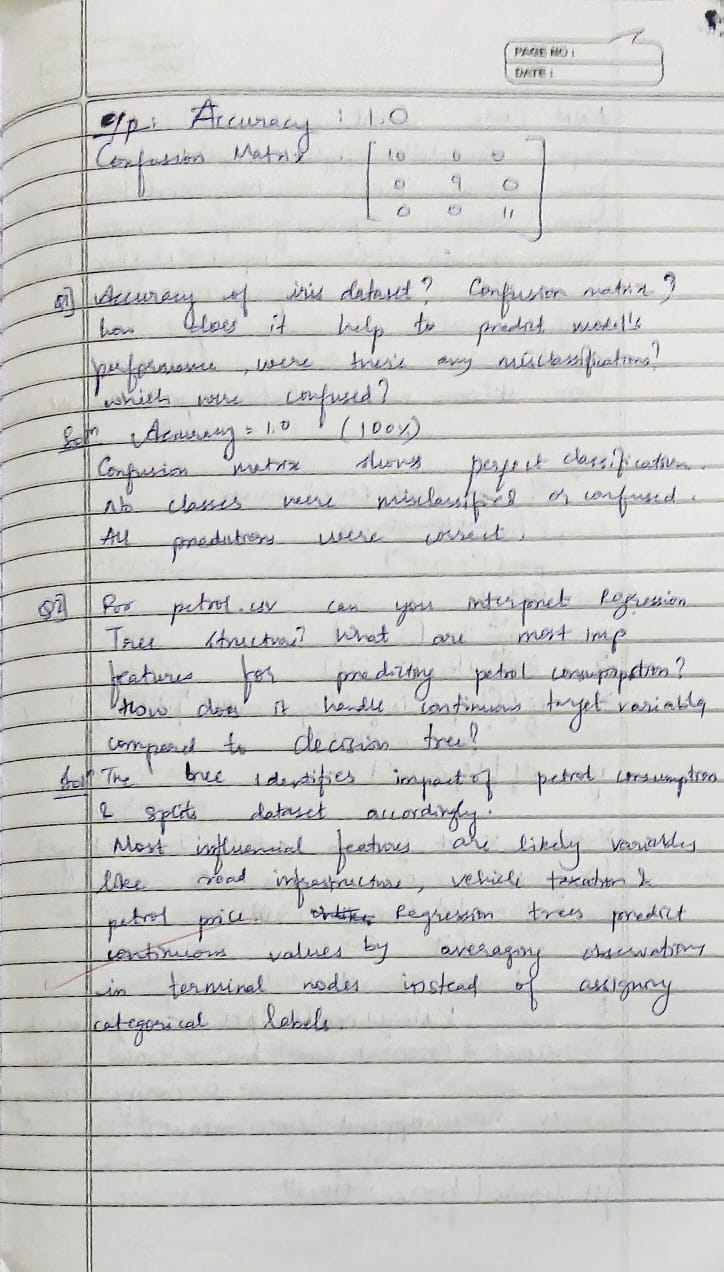 PAGE NO:
DATE:
o/p: Accuracy : 1.0
Confusion Matrix : [ 10 0 0
0 9 0
0 0 11 ]
Q1] Accuracy of iris dataset? Confusion matrix?
how does it help to predict model's
performance, were there any misclassifications?
which were confused?
Solⁿ Accuracy = 1.0 (100%)
Confusion matrix shows perfect classification.
No classes were misclassified or confused.
All predictions were correct.
Q2] For petrol.csv can you interpret Regression
Tree structure? What are most imp
features for predicting petrol consumption?
How does it handle continuous target variable
compared to decision tree?
Solⁿ The tree identifies impact of petrol consumption
& splits dataset accordingly.
Most influencial features are likely variables
like road infrastructure, vehicle taxation &
petrol price. Regression trees predict
continuous values by averaging observations
in terminal nodes instead of assigning
categorical labels.